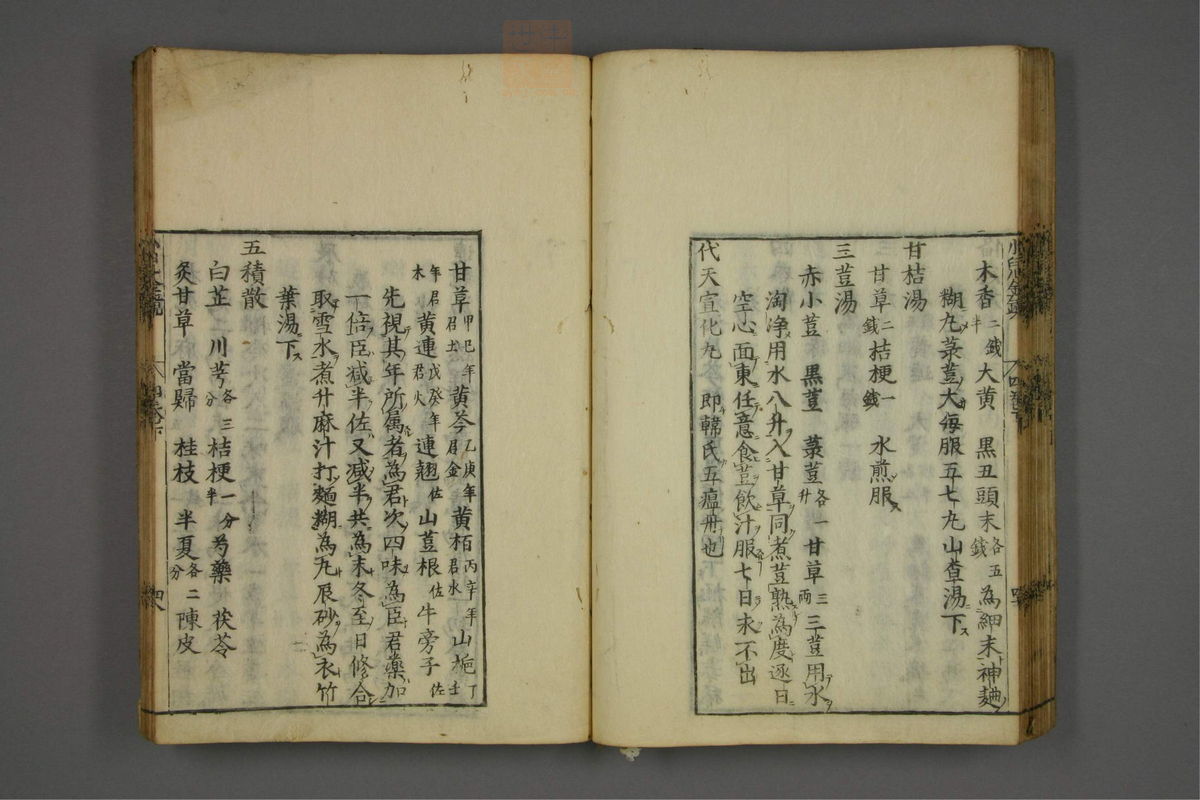 木香二錢半大黃 黑丑頭末各五錢為細末神麯
糊丸菉荳大每服五七丸山查湯下
甘桔湯
甘草二錢桔梗一錢 水煎服
三荳湯
赤小荳 黑荳 菉荳各一升甘草三兩三荳用水
淘淨用水八升入甘草同煮荳熟為度逐日
空心面東任意食荳飲汁服七日未不出
代天宣化丸 即韓氏五瘟丹也
甘草甲己年君土黃芩乙庚年君金黃栢丙辛年君水山梔丁壬
年君木黃連戊癸年君火連翹佐山荳根佐牛旁子佐
先視其年所属者為君次四味為臣君藥加
一倍臣减半佐又减半共為末冬至日修合
取雪水煮升麻汁打麵糊為丸辰砂為衣竹
葉湯下
五積散
白芷 川芎各三分桔梗一分半芍藥 茯苓
炙甘草 當歸 桂枝 半夏各二分陳皮